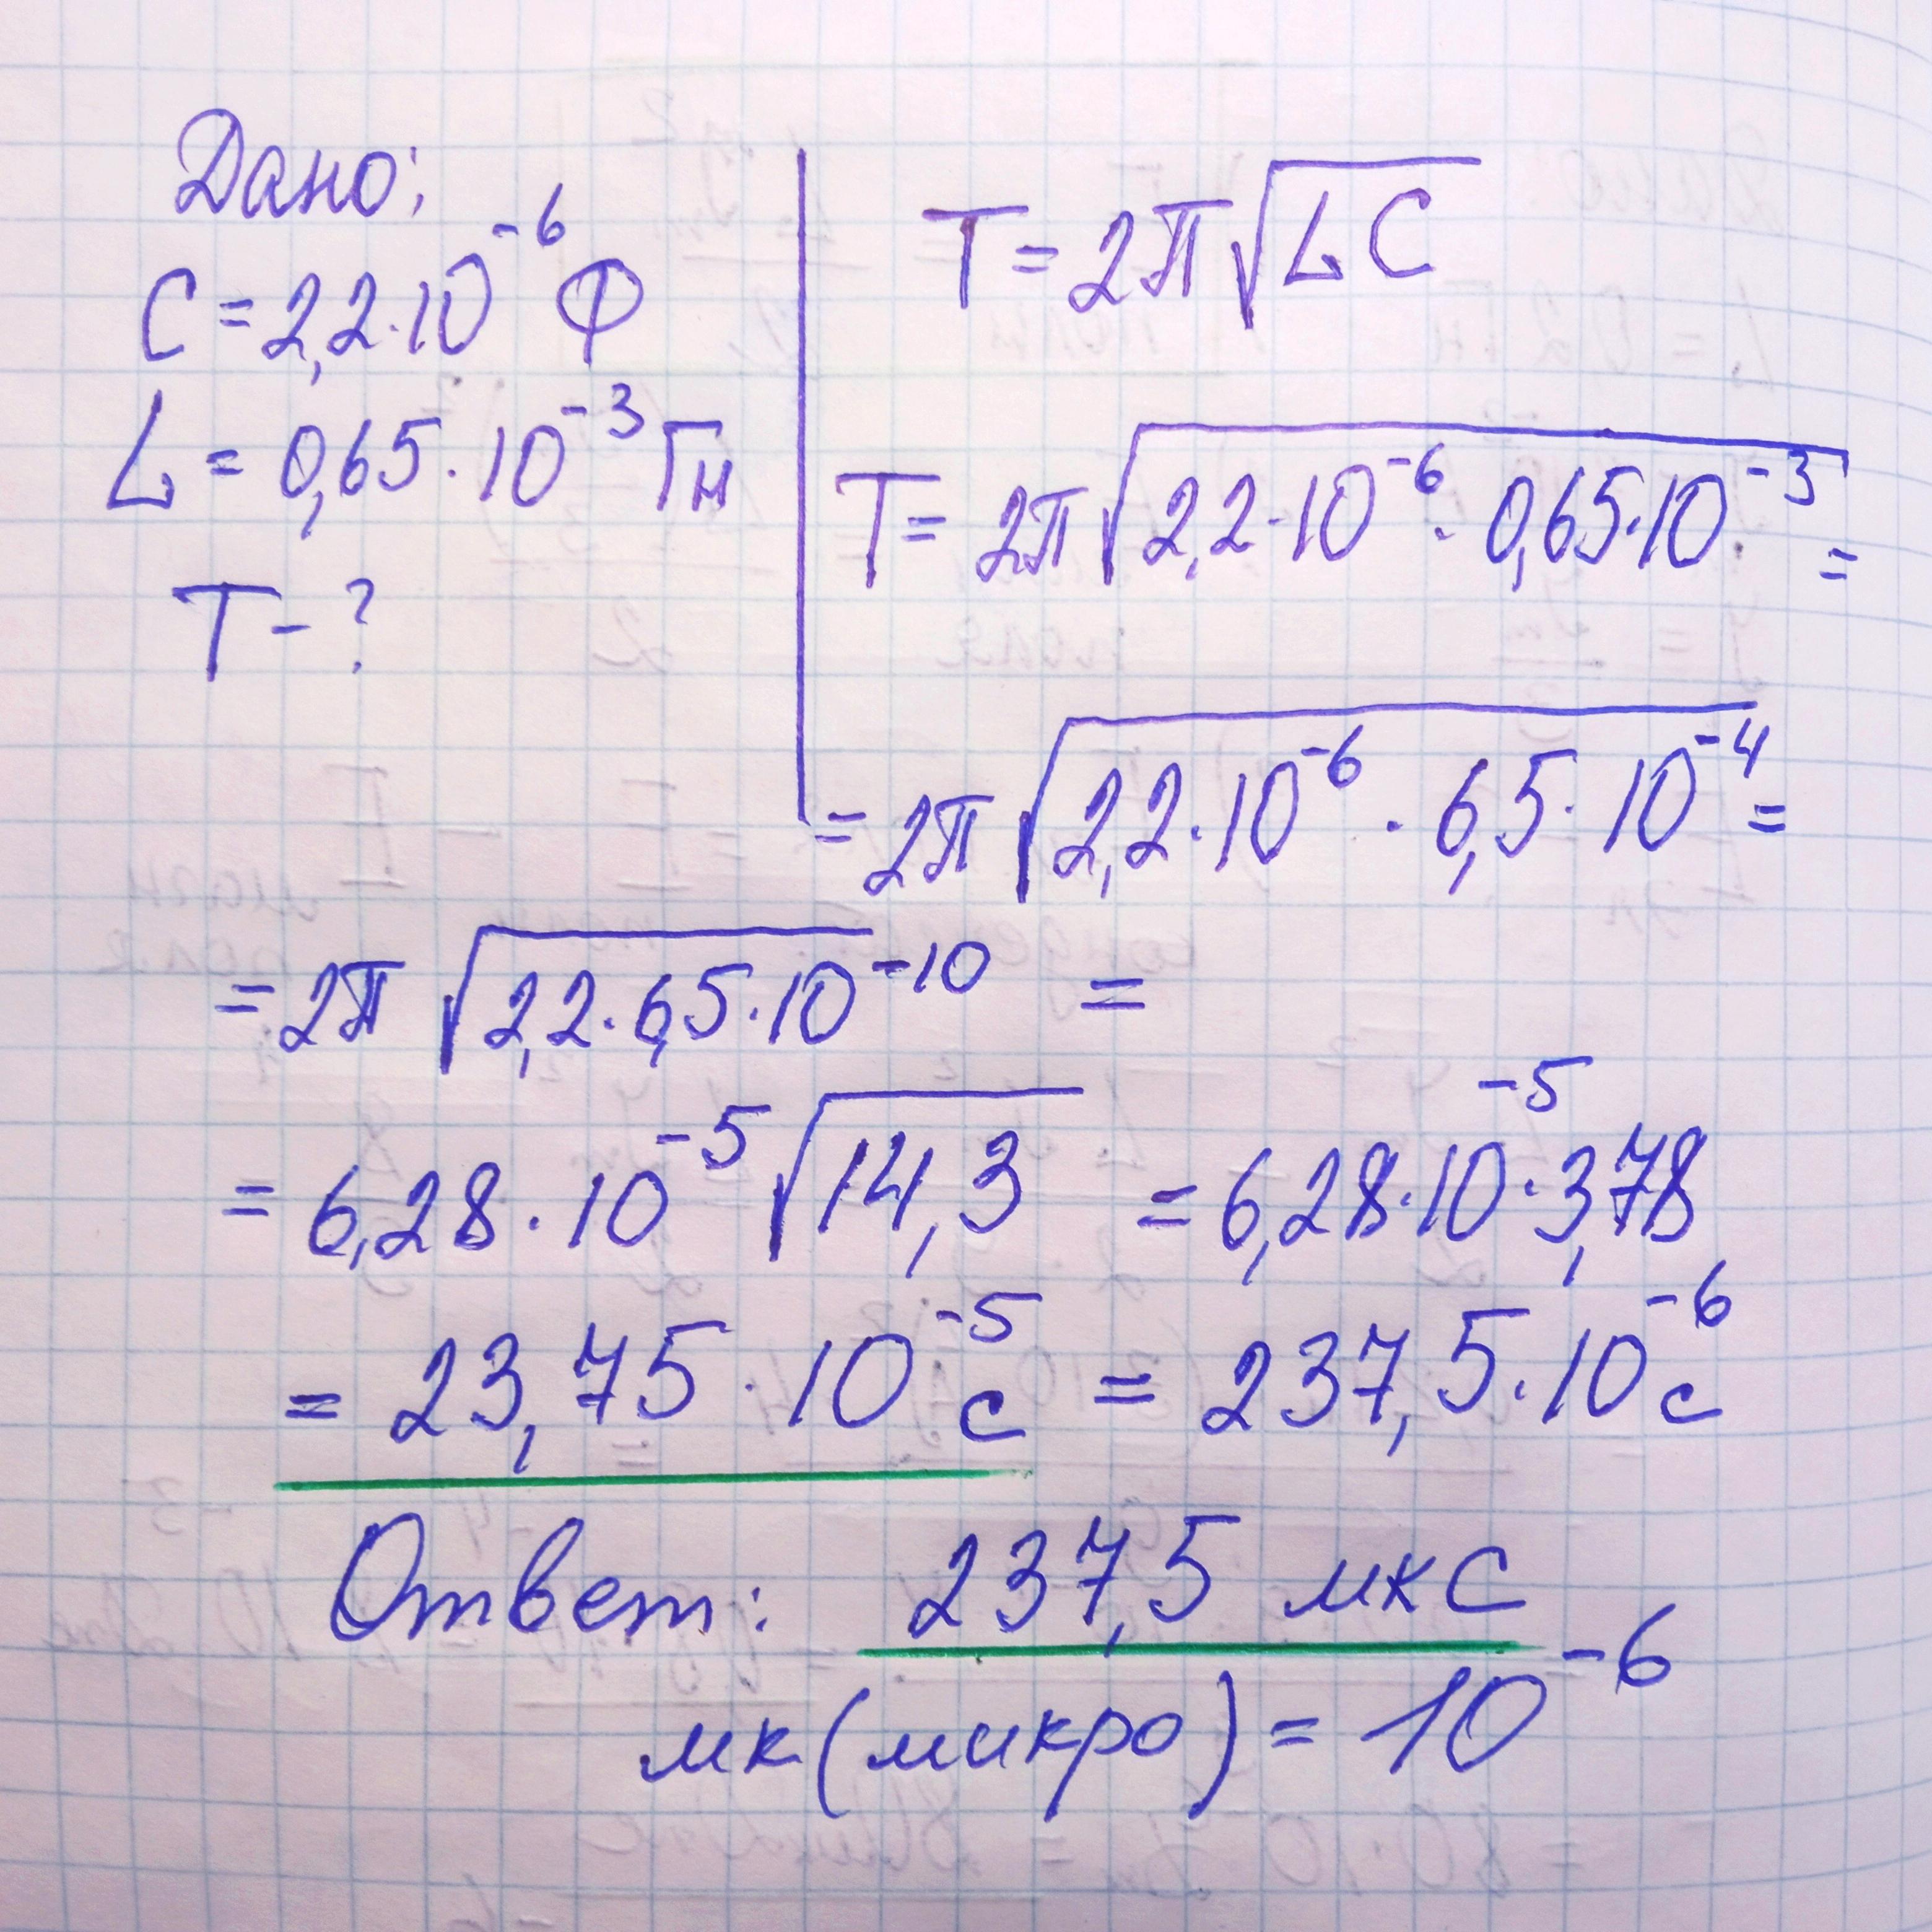 Дано:
C = 2,2·10⁻⁶ Ф
L = 0,65·10⁻³ Гн
T - ?
T = 2π√LC
T = 2π√2,2·10⁻⁶ · 0,65·10⁻³ =
= 2π√2,2·10⁻⁶ · 6,5·10⁻⁴ =
= 2π√2,2·6,5·10⁻¹⁰ =
= 6,28·10⁻⁵√14,3 = 6,28·10⁻⁵·3,78
= 23,75·10⁻⁵ с = 237,5·10⁻⁶ с
Ответ: 237,5 мкс
мк(микро) = 10⁻⁶